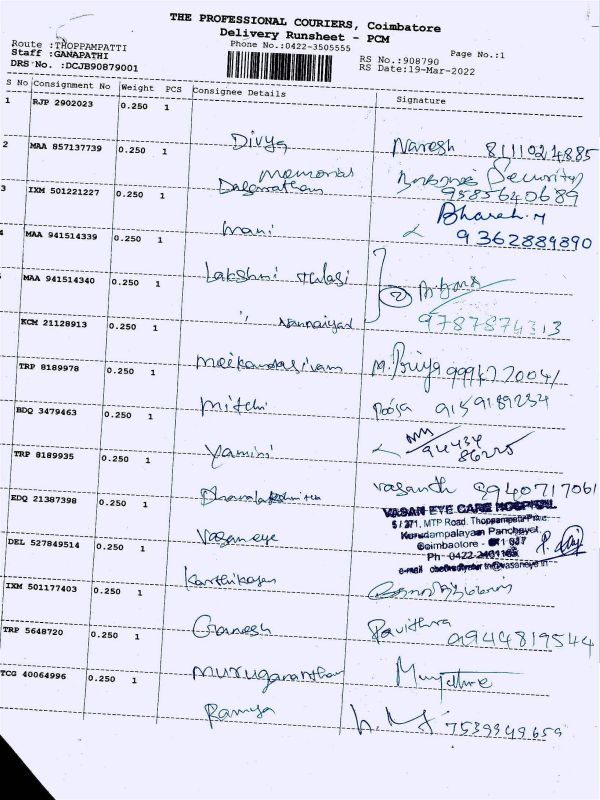 THE PROFESSIONAL COURIERS, Coimbatore
Delivery Runsheet - PCM
Route :THOPPAMPATTI
Phone No.:0422-3505555
Page No.:1
Staff :GANAPATHI
RS No.:908790
DRS No. :DCJB90879001
RS Date:19-Mar-2022
S No Consignment No Weight PCS Consignee Details Signature
1 RJP 2902023 0.250 1
Divya Naresh
2 MAA 857137739 0.250 1
Memorial Security
9585640689
3 IXM 501221227 0.250 1
Mani Bharath. M
9362889890
4 MAA 941514339 0.250 1
Lakshmi
MAA 941514340 0.250 1
2
9787874313
KCM 21128913 0.250 1
Meikandasivam M. Priya
TRP 8189978 0.250 1
Mitchi Pooja 9159189234
BDQ 3479463 0.250 1
Yamini
TRP 8189935 0.250 1
Vasanth 9940717061
EDQ 21387398 0.250 1
Vasan eye
VASAN EYE CARE HOSPITAL
5 / 371, MTP Road, Thoppampatti
Kurudampalayam Panchayat
Coimbatore
Ph
e-mail
DEL 527849514 0.250 1
Karthikeyan
IXM 501177403 0.250 1
Ganesh Pavithra 9944819544
TRP 5648720 0.250 1
Muruganantham
TCG 40064996 0.250 1
Ramya 7539949659